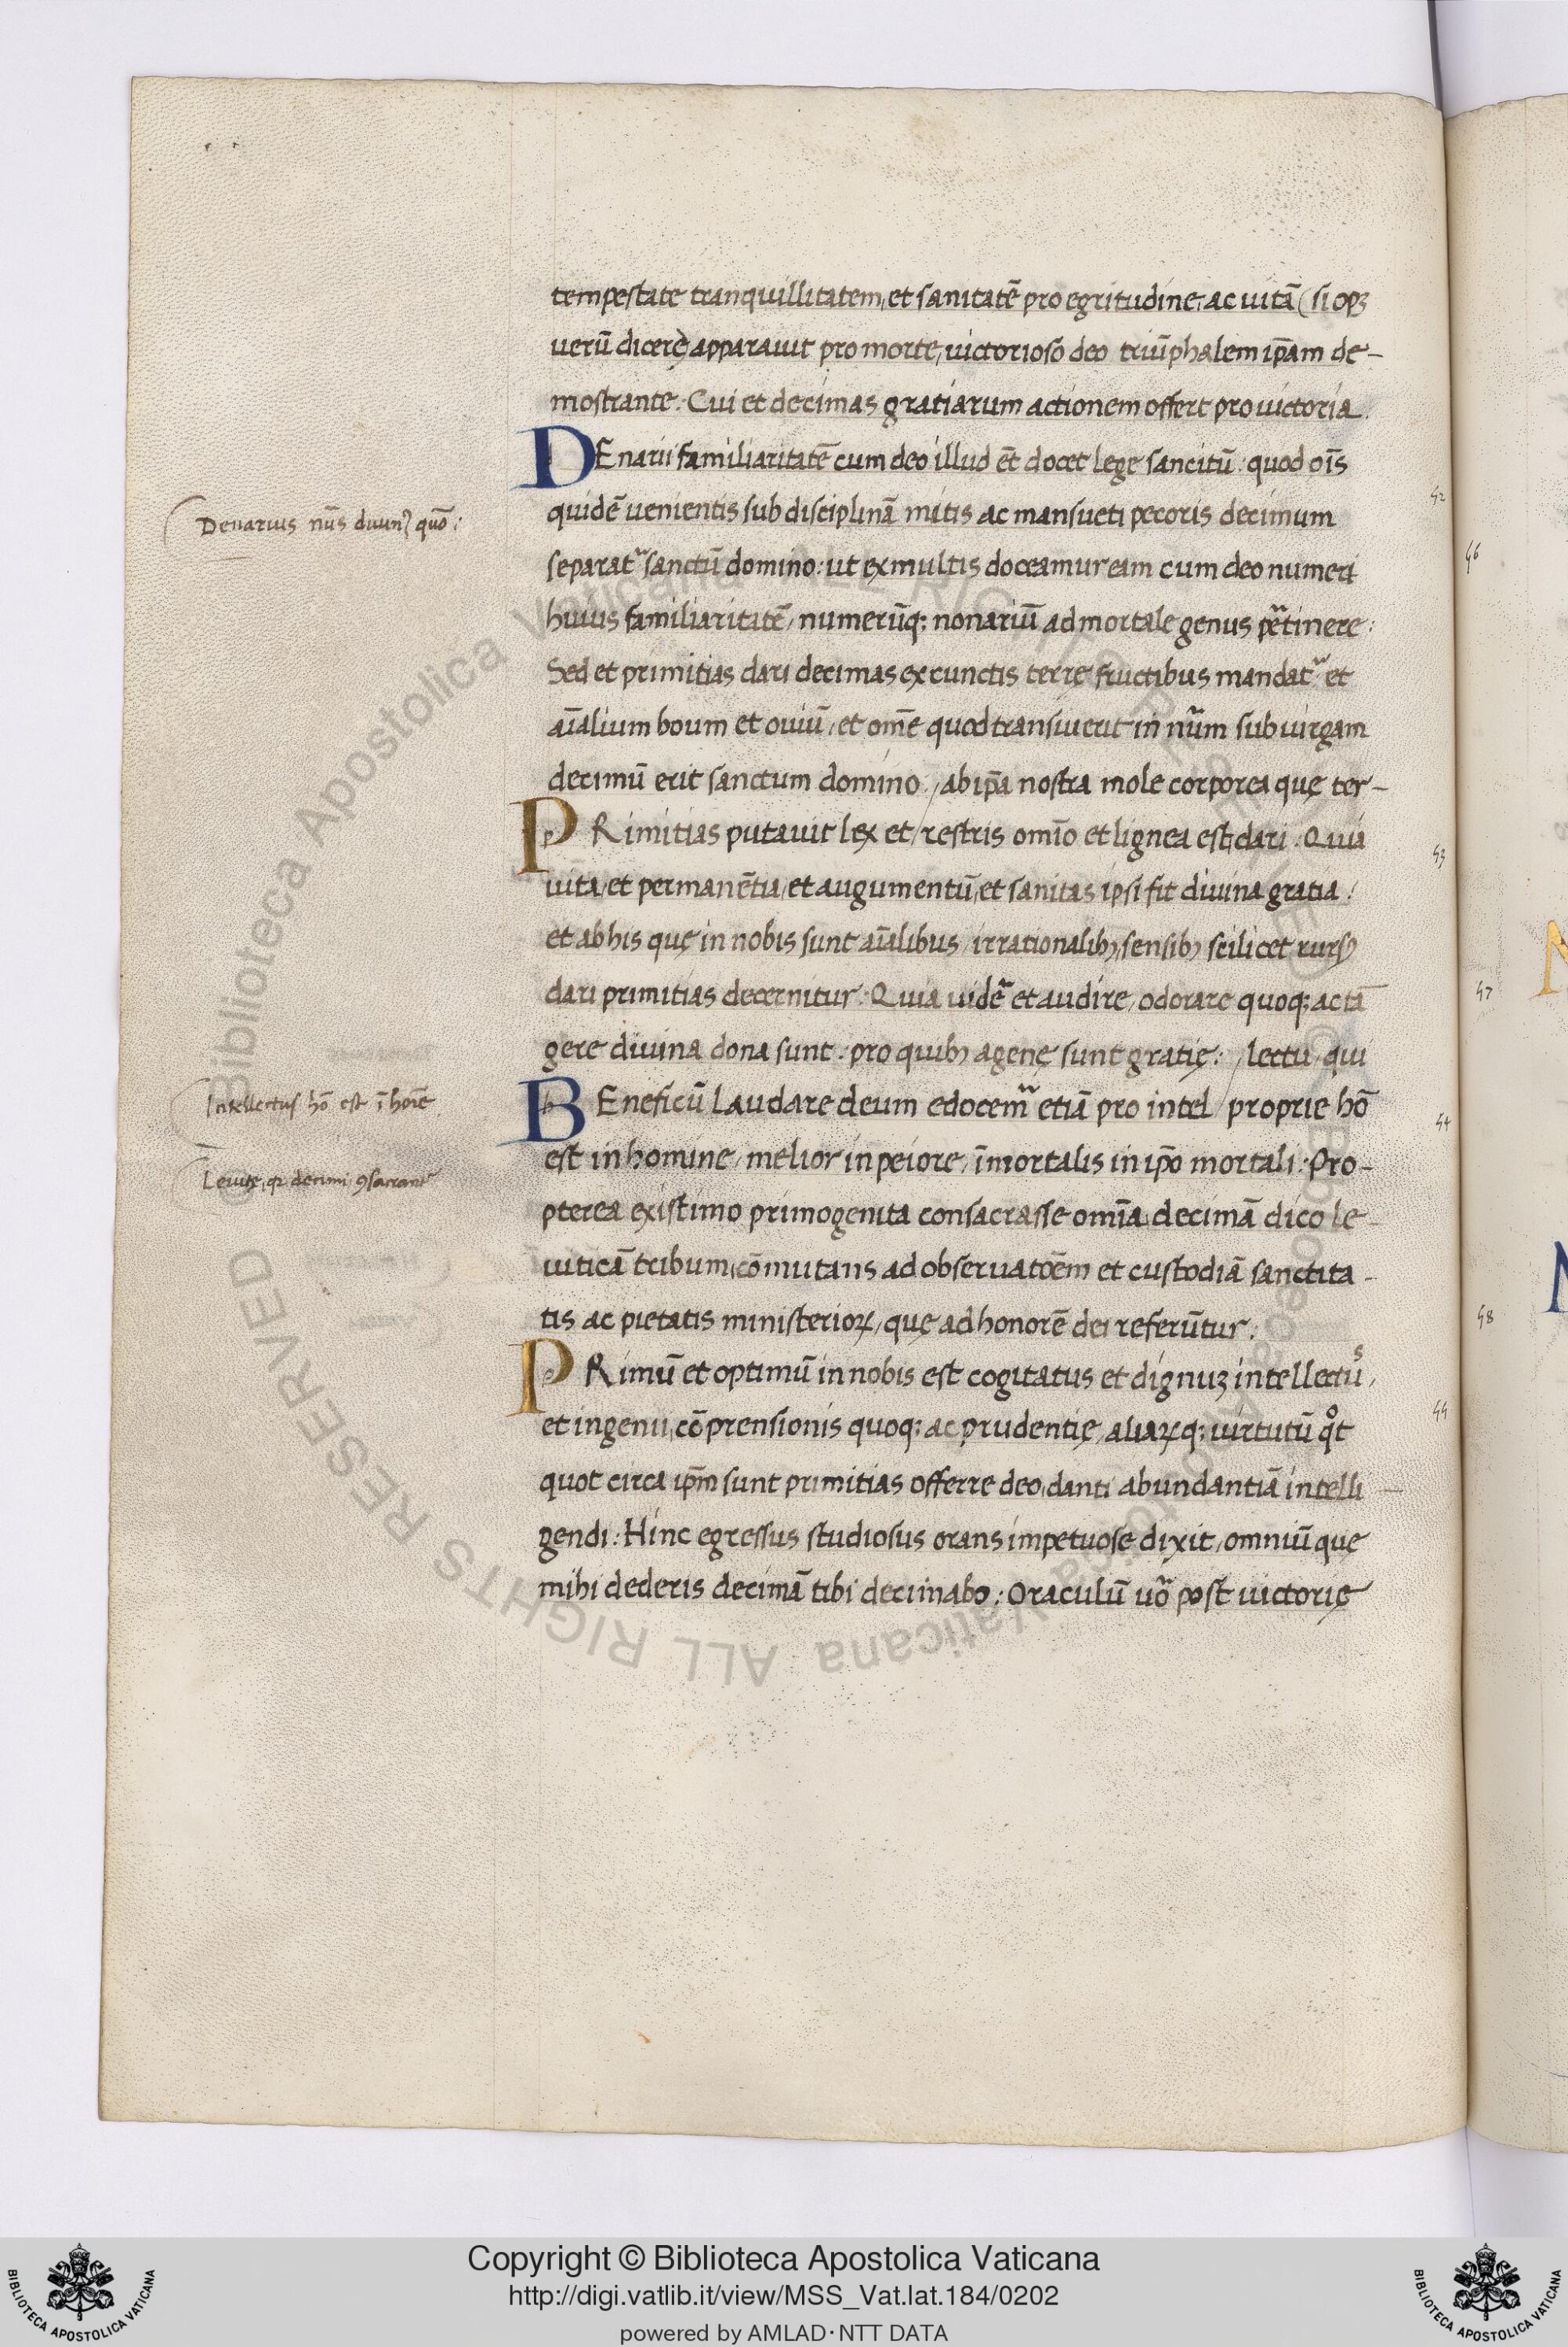 tempestate tranquillitatem, et sanitatē pro egritudine, ac uitā (si opȝ
uerū dicere) apparauit pro morte, uictorioso deo triūphalem ip̄am de-
mostrante. Cui et decimas gratiarum actionem offert pro uictoria.
DEnarii familiaritatē cum deo illud ēt docet lege sancitū: quod oīs
Denarius nūs diuinꝰ quō:
quidē uenientis sub disciplinā mitis ac mansueti pecoris decimum
separat᷑ sanctū domino: ut ex multis doceamur eam cum deo numeri
huius familiaritatē, numerūq; nonariū ad mortale genus ꝑtinere:
Sed et primitias dari decimas ex cunctis terrę fructibus mandat᷑ et
aīalium boum et ouiū, et om̄e quod transiuerit in nūm sub uirgam
decimū erit sanctum domino. / ab ip̄a nostra mole corporea quę ter-
PRimitias putauit lex et / restris omīo et lignea est, dari. Quia
uita, et permanētia, et augumentū, et sanitas ipsi fit diuina gratia:
et ab his quę in nobis sunt aīalibus irrationalibꝫ, sensibꝫ scilicet rursꝰ
dari primitias decernitur. Quia uidē᷑ et audire, odorare quoq; ac tā
gere diuina dona sunt: pro quibꝫ agenę sunt gratię: / lectu, qui
BEneficū laudare deum edocem᷑ etiā pro intel / proprie hō
Intellectus hō est ī hoīe
est in homine, melior in peiore, īmortalis in ip̄o mortali. Pro-
Leuitę, qꝛ decimi ꝯsacrant᷑
pterea existimo primogenita consacrasse omīa, decimā dico le-
uiticā tribum, cōmutans ad obseruatōēm et custodiā sanctita-
tis ac pietatis ministerioꝝ, quę ad honorē dei referūtur:
PRimū et optimū in nobis est cogitatus et dignuȝ intellectūs,
et ingenii, cōprensionis quoq; ac prudentię, aliaꝝq; uirtutū qͦt
quot circa ip̄m sunt primitias offerre deo, danti abundantiā intelli-
gendi: Hinc egressus studiosus orans impetuose dixit, omniū quę
mihi dederis decimā tibi decimabo: Oraculū uō post uictorię
52
53
54
55
56
57
58
Biblioteca Apostolica Vaticana ALL RIGHTS RESERVED
Copyright © Biblioteca Apostolica Vaticana
http://digi.vatlib.it/view/MSS_Vat.lat.184/0202
powered by AMLAD·NTT DATA
BIBLIOTECA APOSTOLICA VATICANA
BIBLIOTECA APOSTOLICA VATICANA